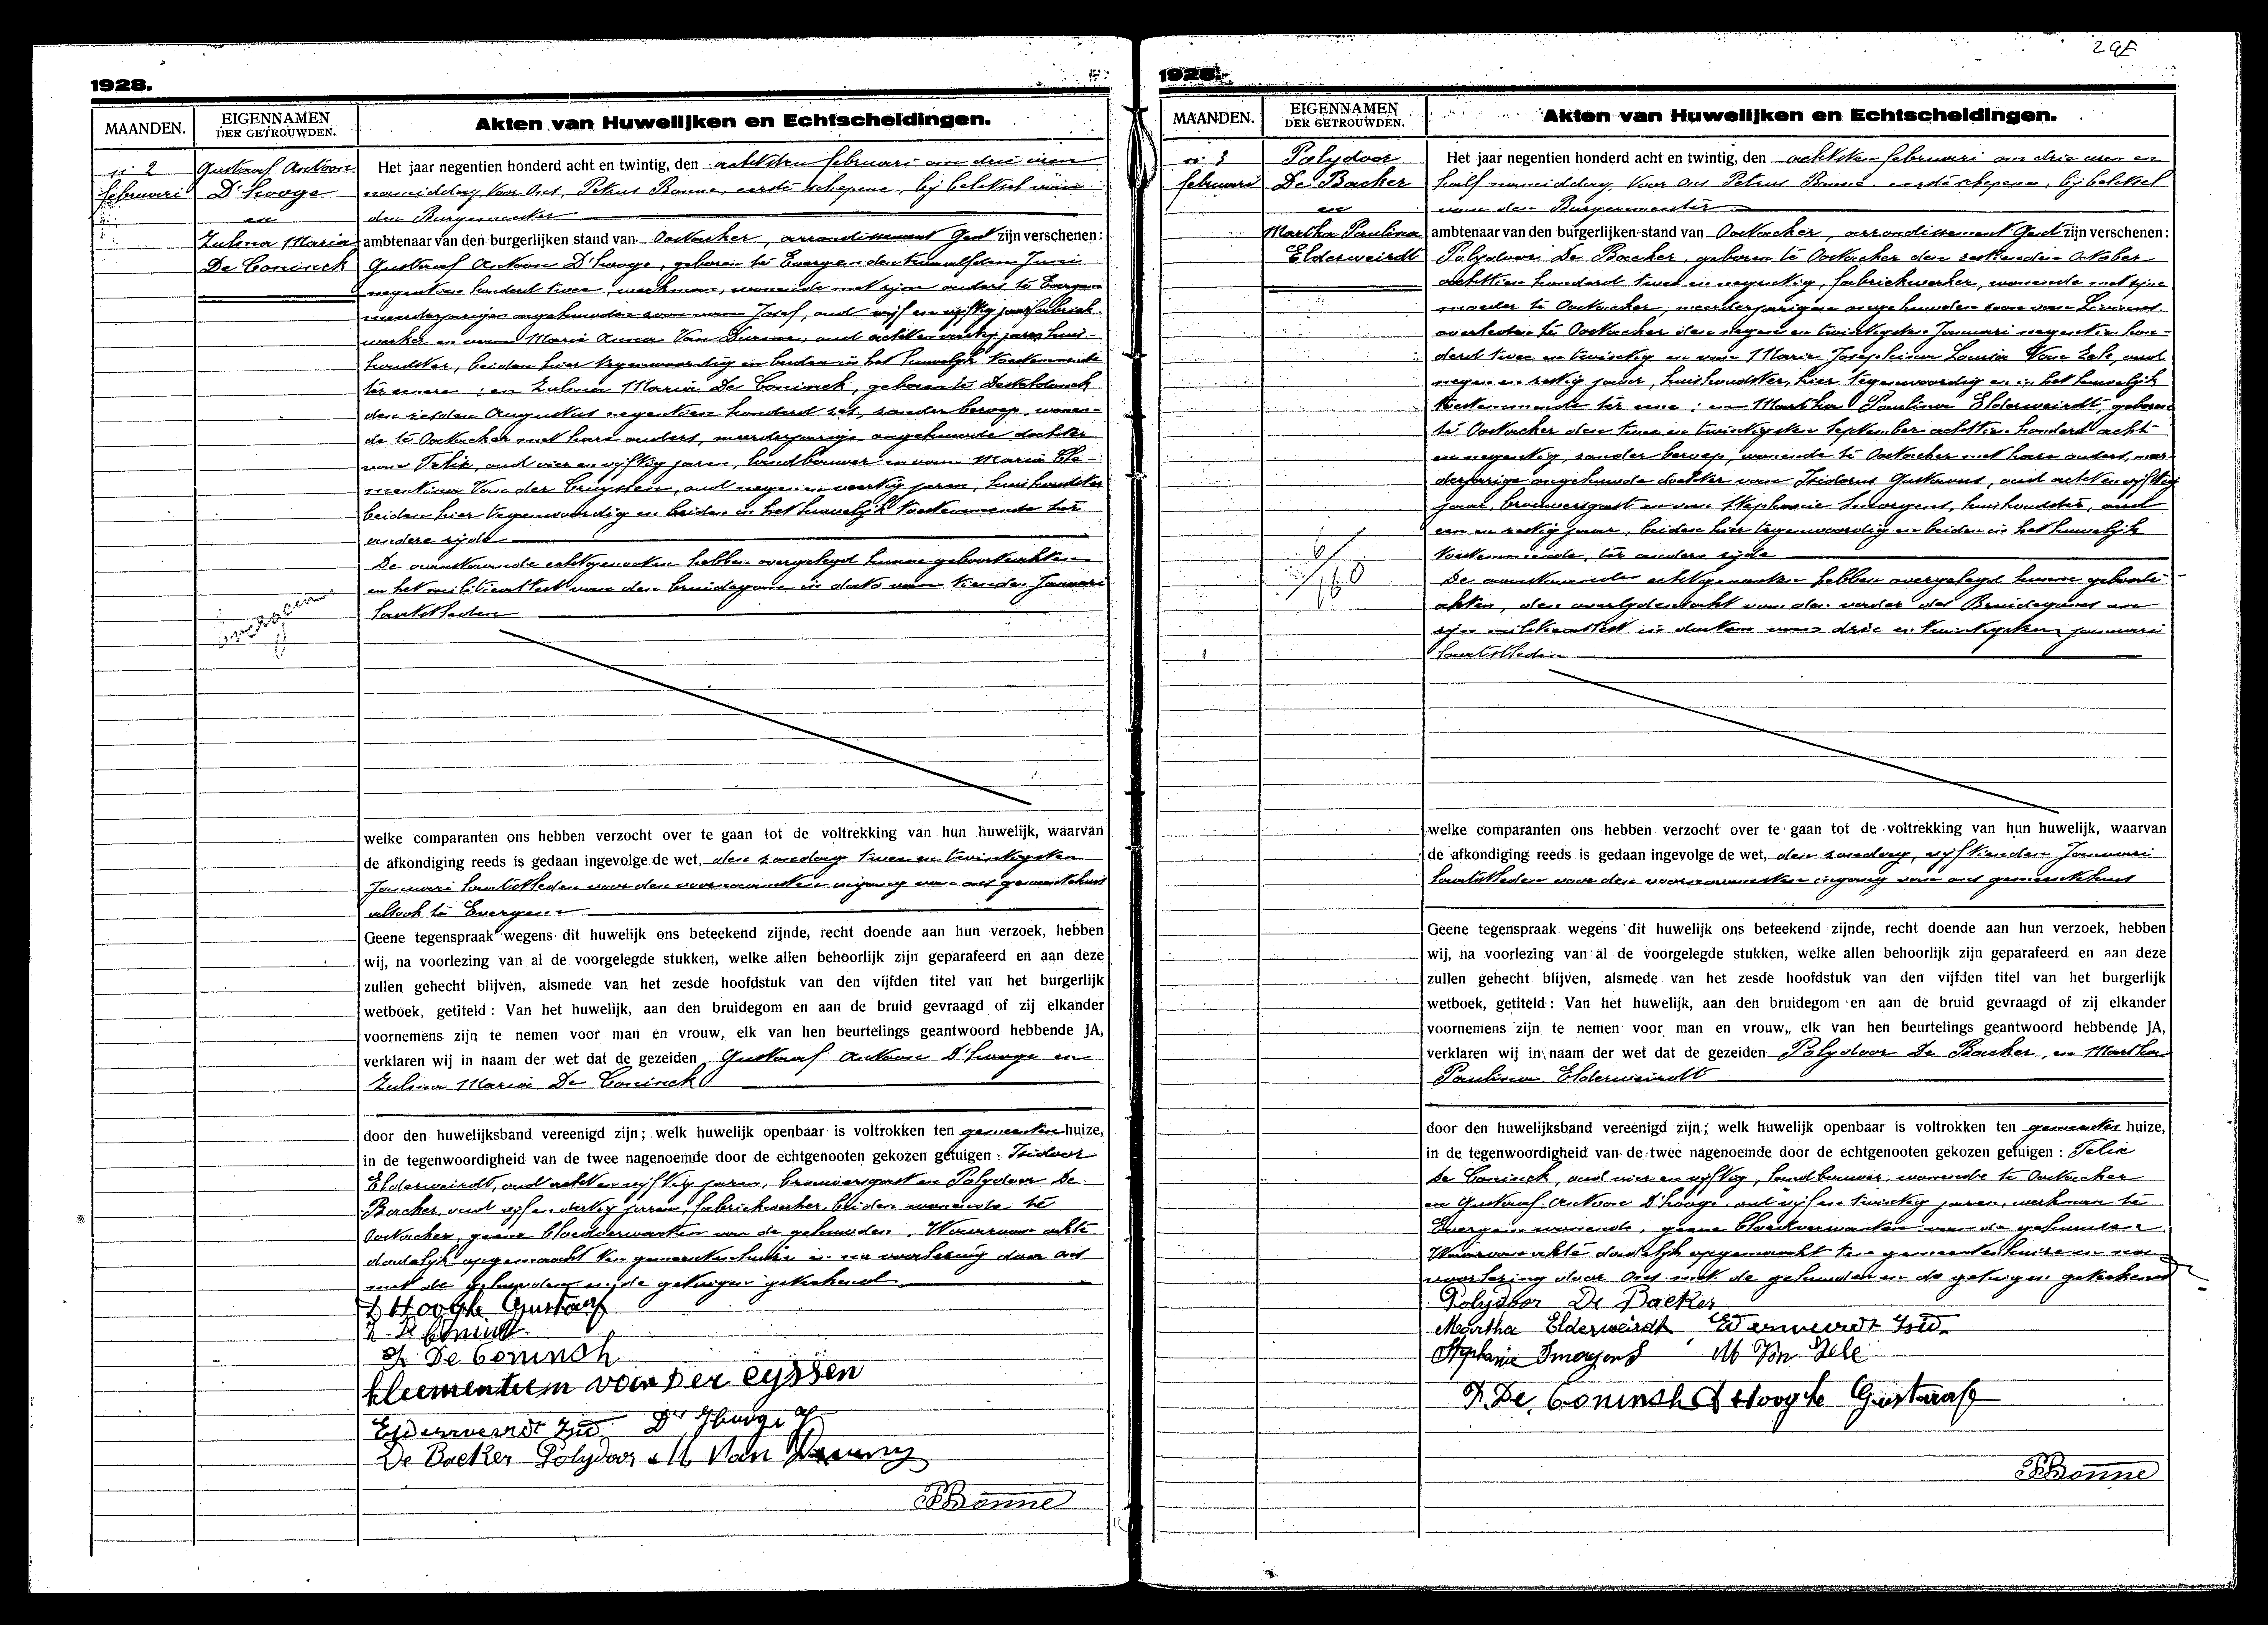 1928.
MAANDEN.
EIGENNAMEN
DER GETROUWDEN.
Akten van Huwelijken en Echtscheidingen.
n° 2
februari
Gustaaf Antoon
D'hooge
en
Zulma Maria
De Coninck
Evergem
Het jaar negentien honderd acht en twintig, den achtsten februari om drie uren
namiddag, Voor Ons, Petrus Bonne, eerste schepene, bij beletsel van
den Burgemeester
ambtenaar van den burgerlijken stand van Oostacker, arrondissement Gent zijn verschenen:
Gustaaf Antoon D'hooge, geboren te Evergem den twaalfden Juni
negentien honderd twee, werkman, wonende met zijne ouders te Evergem
meerderjarigen ongehuwden zoon van Josef, oud vijf en vijftig jaar, fabriek-
werker en van Maria Anna Van Durme, oud acht en veertig jaren, huis-
houdster, beiden hier tegenwoordig en beiden in het huwelijk toestemmende
ter eenre : en Zulma Maria De Coninck, geboren te Desteldonck
den zesden Augustus negentien honderd zes, zonder beroep, wonen-
de te Oostacker met hare ouders, meerderjarige ongehuwde dochter
van Felix, oud vier en vijftig jaren, landbouwer en van Maria Cle-
mentina Van der Cruyssen, oud negen en veertig jaren, huishoudster
beiden hier tegenwoordig en beiden in het huwelijk toestemmende ter
andere zijde
De aanstaande echtgenooten hebben overgelegd hunne geboorteakten
en het militieattest van den bruidegom in dato van tienden Januari
laatstleden
welke comparanten ons hebben verzocht over te gaan tot de voltrekking van hun huwelijk, waarvan
de afkondiging reeds is gedaan ingevolge de wet, den zondag twee en twintigsten
Januari laatstleden voor den voornaamsten ingang van ons gemeentehuis
alsook te Evergem
Geene tegenspraak wegens dit huwelijk ons beteekend zijnde, recht doende aan hun verzoek, hebben
wij, na voorlezing van al de voorgelegde stukken, welke allen behoorlijk zijn geparafeerd en aan deze
zullen gehecht blijven, alsmede van het zesde hoofdstuk van den vijfden titel van het burgerlijk
wetboek, getiteld : Van het huwelijk, aan den bruidegom en aan de bruid gevraagd of zij elkander
voornemens zijn te nemen voor man en vrouw, elk van hen beurtelings geantwoord hebbende JA,
verklaren wij in naam der wet dat de gezeiden Gustaaf Antoon D'hooge en
Zulma Maria De Coninck
door den huwelijksband vereenigd zijn; welk huwelijk openbaar is voltrokken ten gemeenten huize,
in de tegenwoordigheid van de twee nagenoemde door de echtgenooten gekozen getuigen : Isidoor
Elderweirdt, oud acht en vijftig jaren, brouwersgast en Polydoor De
Backer, oud vijf en dertig jaren, fabriekwerker, beiden wonende te
Oostacker, geene bloedverwanten van de gehuwden. Waarvan akte
dadelijk opgemaakt ten gemeentenhuize en na voorlezing door ons
met de gehuwden en de getuigen geteekend
D Hooghe Gustaaf
Z. De Coninck
F. De Coninsh
kleementeem van Der eyssen
Elderweirdt Isid D'Hooge
De Backer Polydoor M Van
PBonne
29E
1928.
MAANDEN.
EIGENNAMEN
DER GETROUWDEN.
Akten van Huwelijken en Echtscheidingen.
n° 3
februari
Polydoor
De Backer
en
Martha Paulina
Elderweirdt
Het jaar negentien honderd acht en twintig, den achtsten februari om drie uren en
half namiddag, Voor Ons Petrus Bonne, eerste schepene, bij beletsel
van den Burgemeester
ambtenaar van den burgerlijken stand van Oostacker, arrondissement Gent zijn verschenen:
Polydoor De Backer, geboren te Oostacker den zestienden October
achttien honderd twee en negentig, fabriekwerker, wonende met zijne
moeder te Oostacker, meerderjarigen ongehuwden zoon van Livinus
overleden te Oostacker den negen en twintigsten Januari negentien hon-
derd twee en twintig en van Marie Josephina Louisa Van Zele, oud
negen en zestig jaar, huishoudster, hier tegenwoordig en in het huwelijk
toestemmende ter eene : en Martha Paulina Elderweirdt, geboren
te Oostacker den twee en twintigsten September achttien honderd acht
en negentig, zonder beroep, wonende te Oostacker met hare ouders, meer-
derjarige ongehuwde dochter van Isidorus Gustavus, oud acht en vijftig
jaar, brouwersgast en van Stephanie Smorgens, huishoudster, oud
een en zestig jaar, beiden hier tegenwoordig en beiden in het huwelijk
toestemmende, ter andere zijde
De aanstaande echtgenooten hebben overgelegd hunne geboorte-
akten, den overlijdensakt van den vader des Bruidegoms en
zijn militieattest in datum van drie en twintigsten januari
laatstleden
welke comparanten ons hebben verzocht over te gaan tot de voltrekking van hun huwelijk, waarvan
de afkondiging reeds is gedaan ingevolge de wet, den zondag, vijftienden Januari
laatstleden voor den voornaamsten ingang van ons gemeentehuis
Geene tegenspraak wegens dit huwelijk ons beteekend zijnde, recht doende aan hun verzoek, hebben
wij, na voorlezing van al de voorgelegde stukken, welke allen behoorlijk zijn geparafeerd en aan deze
zullen gehecht blijven, alsmede van het zesde hoofdstuk van den vijfden titel van het burgerlijk
wetboek, getiteld : Van het huwelijk, aan den bruidegom en aan de bruid gevraagd of zij elkander
voornemens zijn te nemen voor man en vrouw, elk van hen beurtelings geantwoord hebbende JA,
verklaren wij in naam der wet dat de gezeiden Polydoor De Backer en Martha
Paulina Elderweirdt
door den huwelijksband vereenigd zijn; welk huwelijk openbaar is voltrokken ten gemeenten huize,
in de tegenwoordigheid van de twee nagenoemde door de echtgenooten gekozen getuigen : Felix
De Coninck, oud vier en vijftig, landbouwer, wonende te Oostacker
en Gustaaf Antoon D'hooge, oud vijf en twintig jaren, werkman te
Evergem wonende, geene bloedverwanten van de gehuwden
Waarvan akte dadelijk opgemaakt ten gemeentenhuize en na
voorlezing door Ons met de gehuwden en de getuigen geteekend
Polydoor De Backer
Martha Elderweirdt Elderweirdt Isid.
Stephanie Smorgens M Van Zele
F. De Coninsh D Hooghe Gustaaf
PBonne